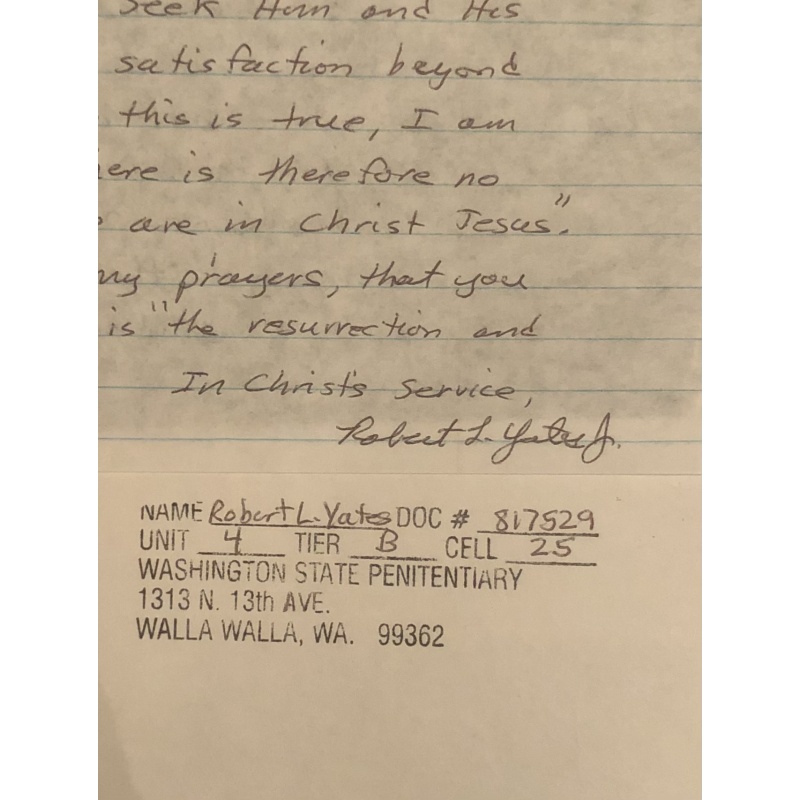 seek Him and His
satisfaction beyond
this is true, I am
ere is therefore no
are in Christ Jesus".
my prayers, that you
is "the resurrection and
In Christ's service,
Robert L. Yates Jr.
NAME Robert L. Yates DOC # 817529
UNIT 4 TIER B CELL 25
WASHINGTON STATE PENITENTIARY
1313 N. 13th AVE.
WALLA WALLA, WA. 99362